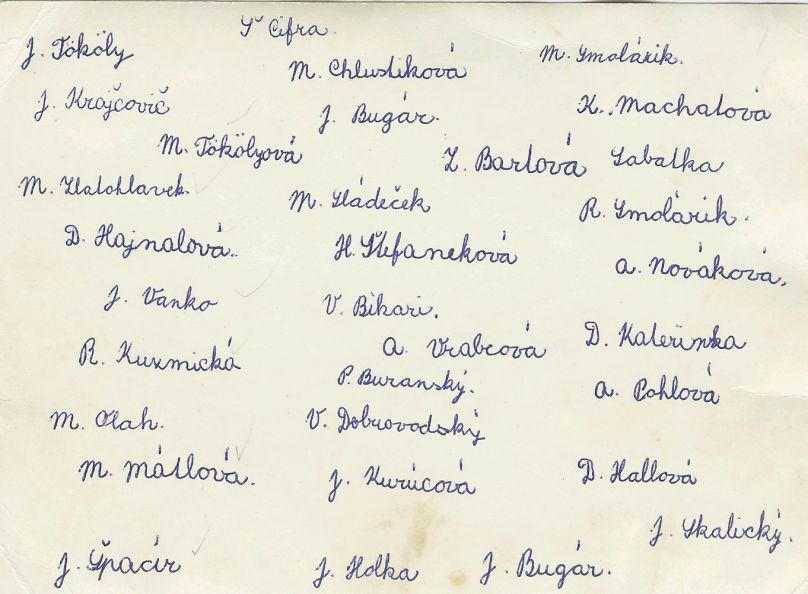 Š Cifra.
J. Tököly
M. Smolárik.
M. Chlustiková
J. Krajčovič
J. Bugár.
K. Machatová
M. Tökölyová
Z. Barlová
Sabatka
M. Zlatohlavek.
M. Sládeček
R. Smolárik.
D. Hajnalová.
H. Štefaneková
A. Nováková.
J. Vanko
V. Bihari.
A. Vrabcová
D. Katerinka
R. Kuzmická
P. Buranský.
A. Pohlová
M. Olah.
V. Dobrovodský
M. Mátlová.
J. Kurúcová
D. Hallová
J. Skalický.
J. Špacír
J. Holka
J. Bugár.